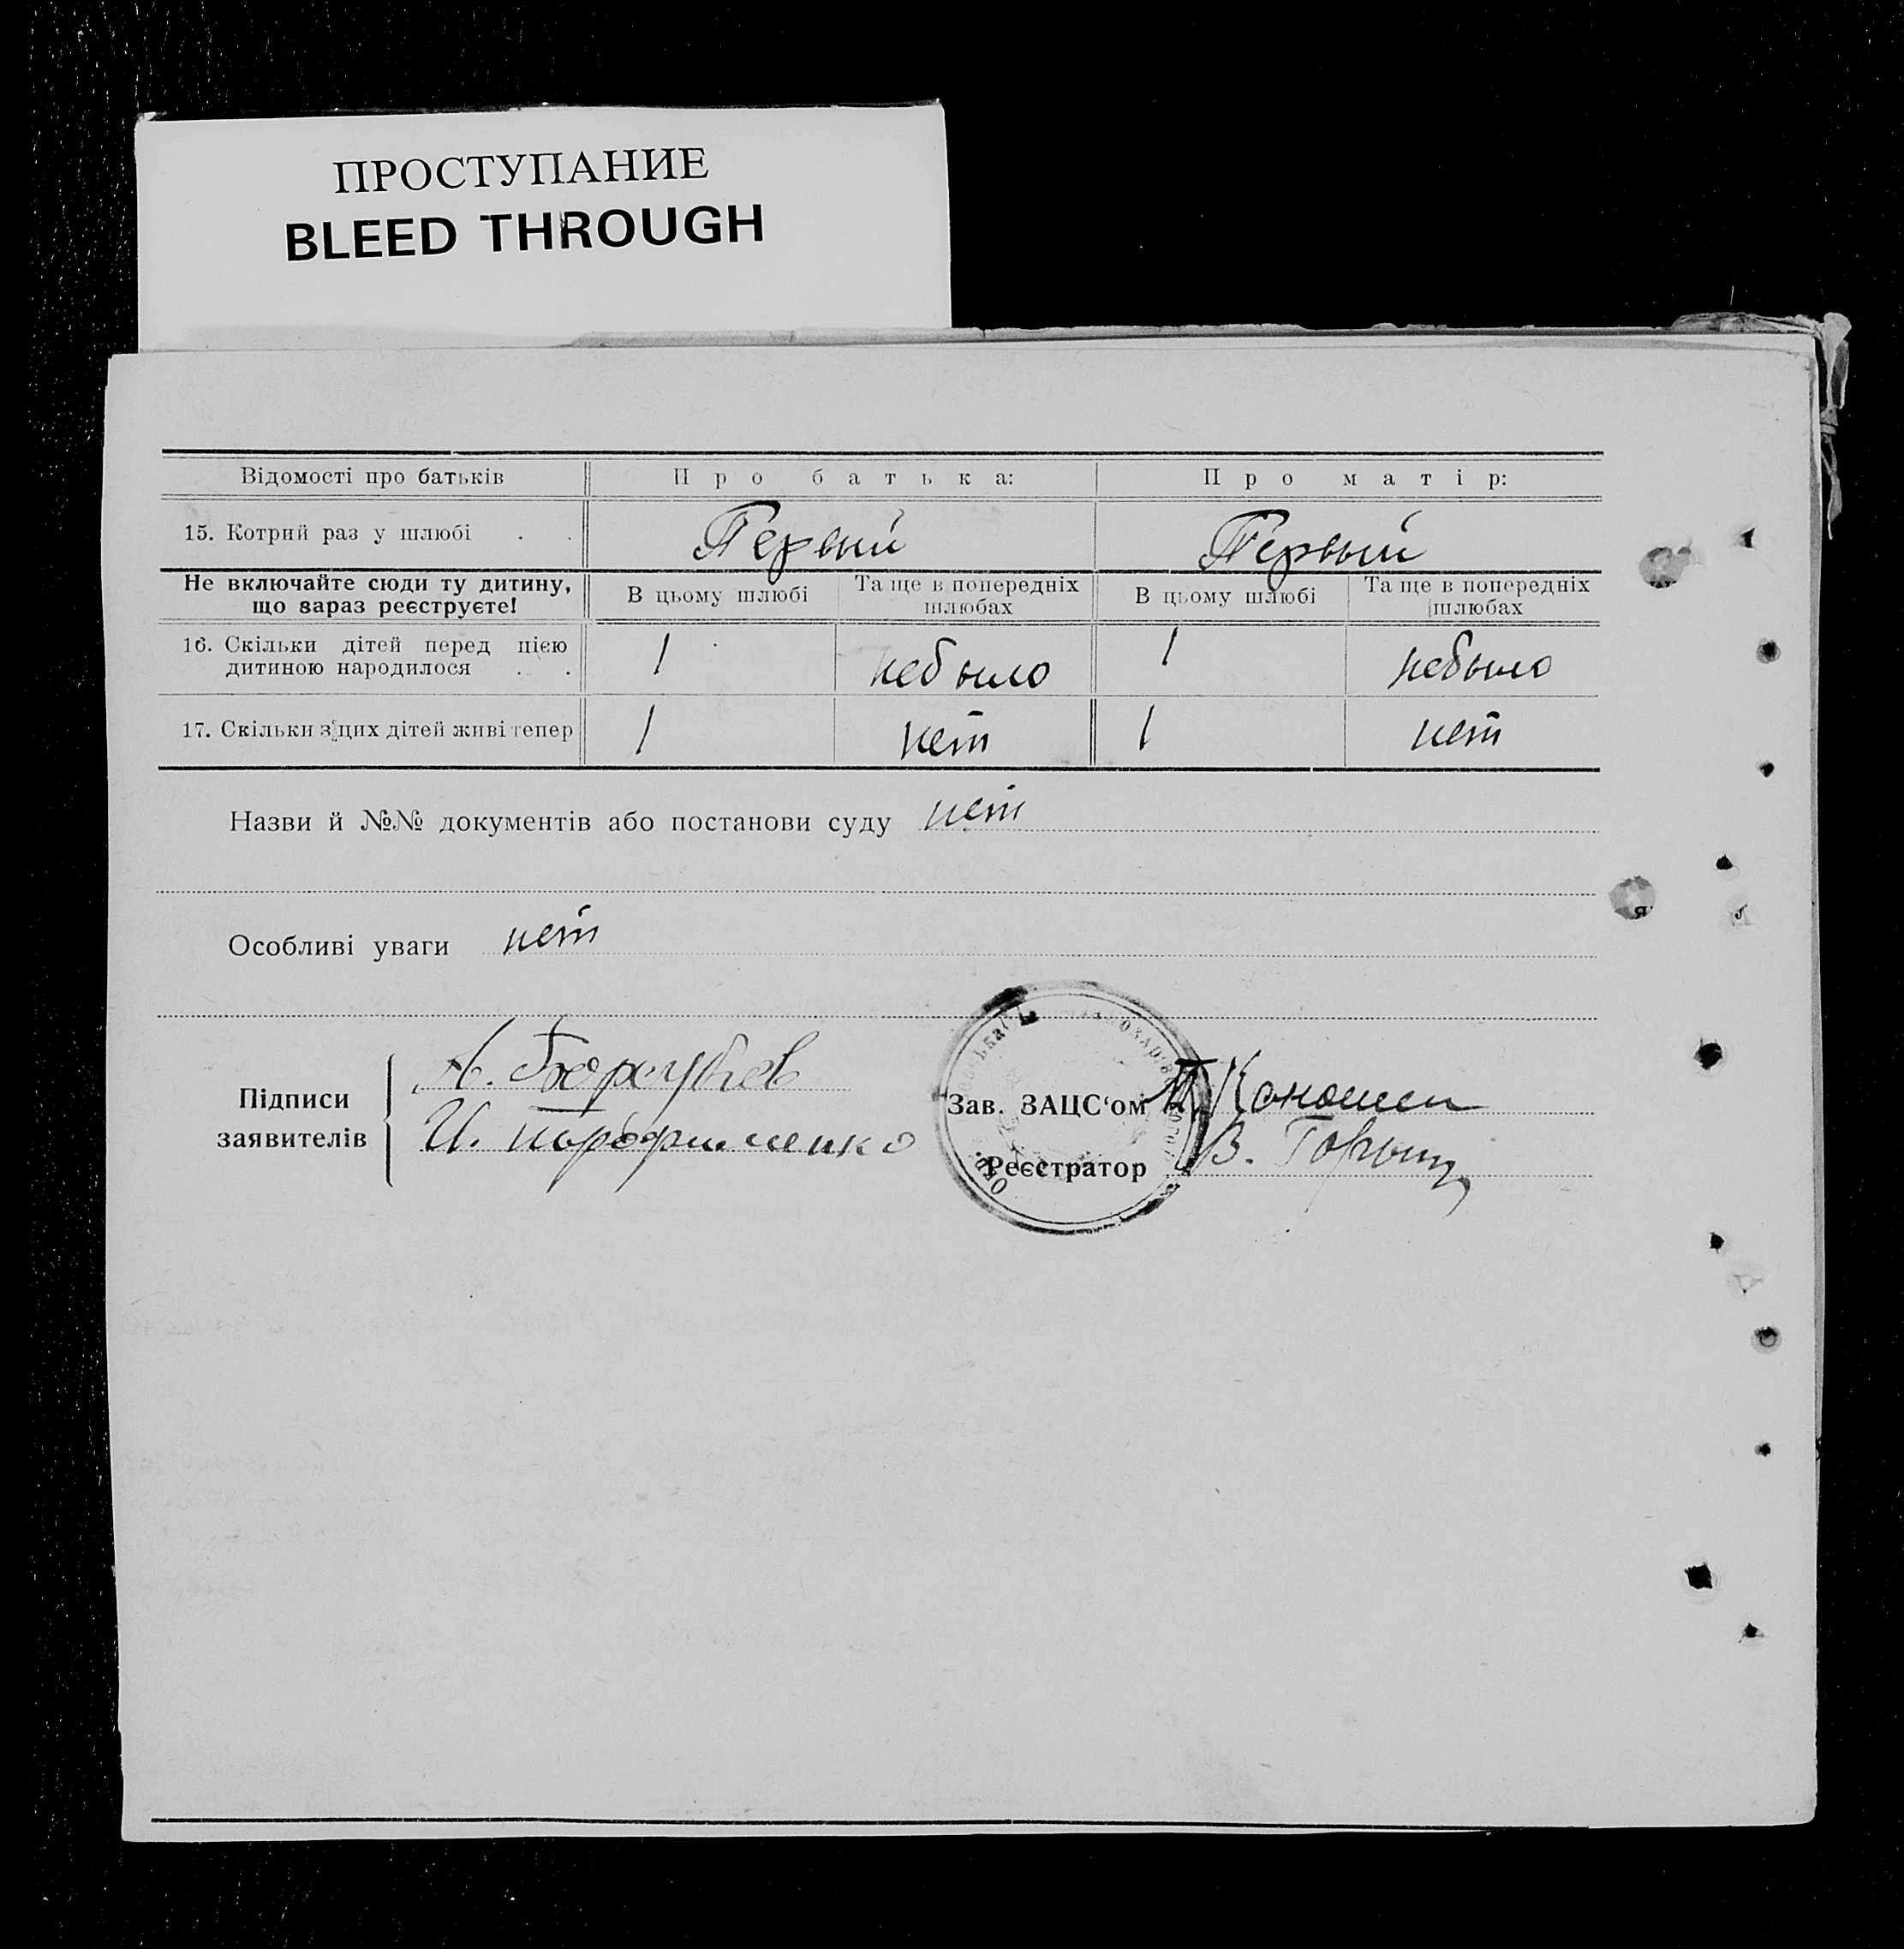 ПРОСТУПАНИЕ
BLEED THROUGH
Відомості про батьків Про батька: Про матір:
15. Котрий раз у шлюбі . . Первый Первый
Не включайте сюди ту дитину, що зараз реєструєте! В цьому шлюбі Та ще в попередніх шлюбах В цьому шлюбі Та ще в попередніх шлюбах
16. Скільки дітей перед цією дитиною народилося . . 1 небыло 1 небыло
17. Скільки з цих дітей живі тепер 1 нет 1 нет
Назви й №№ документів або постанови суду нет
Особливі уваги нет
Підписи заявителів
А.
И.
Зав. ЗАЦС'ом
Реєстратор В.